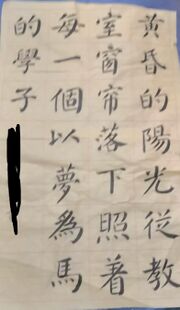 黃昏的陽光從教
室窗帘落下照着
每一個以夢為馬
的學子